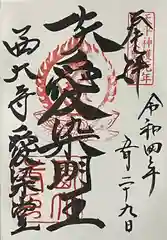 奉拝
令和四年
五月二十九日
大愛染明王
西大寺愛染堂